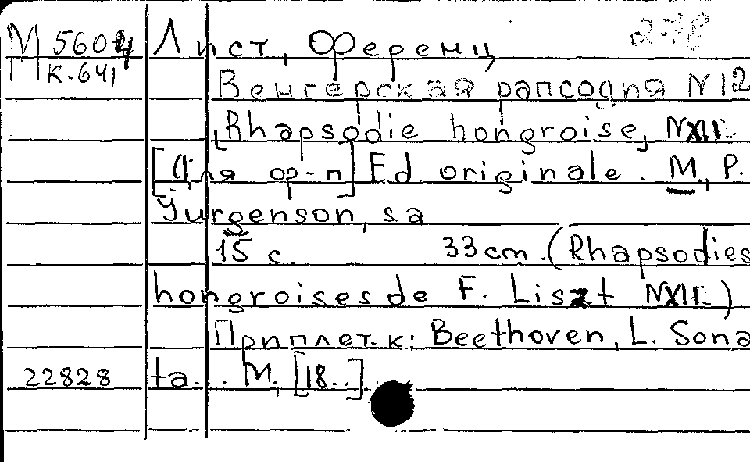 М 5604 Лист, Ференц 278
К.641
Венгерская рапсодия N12
[Rhapsodie hongroise, NXII.
[Для ф-п] Ed originale. М., P.
Jurgenson, s a
15 с. 33 cm. (Rhapsodies
hongroises de F. Liszt NXII.)
Приплет. к: Beethoven, L. Sona
22828 ta... М, [18..].